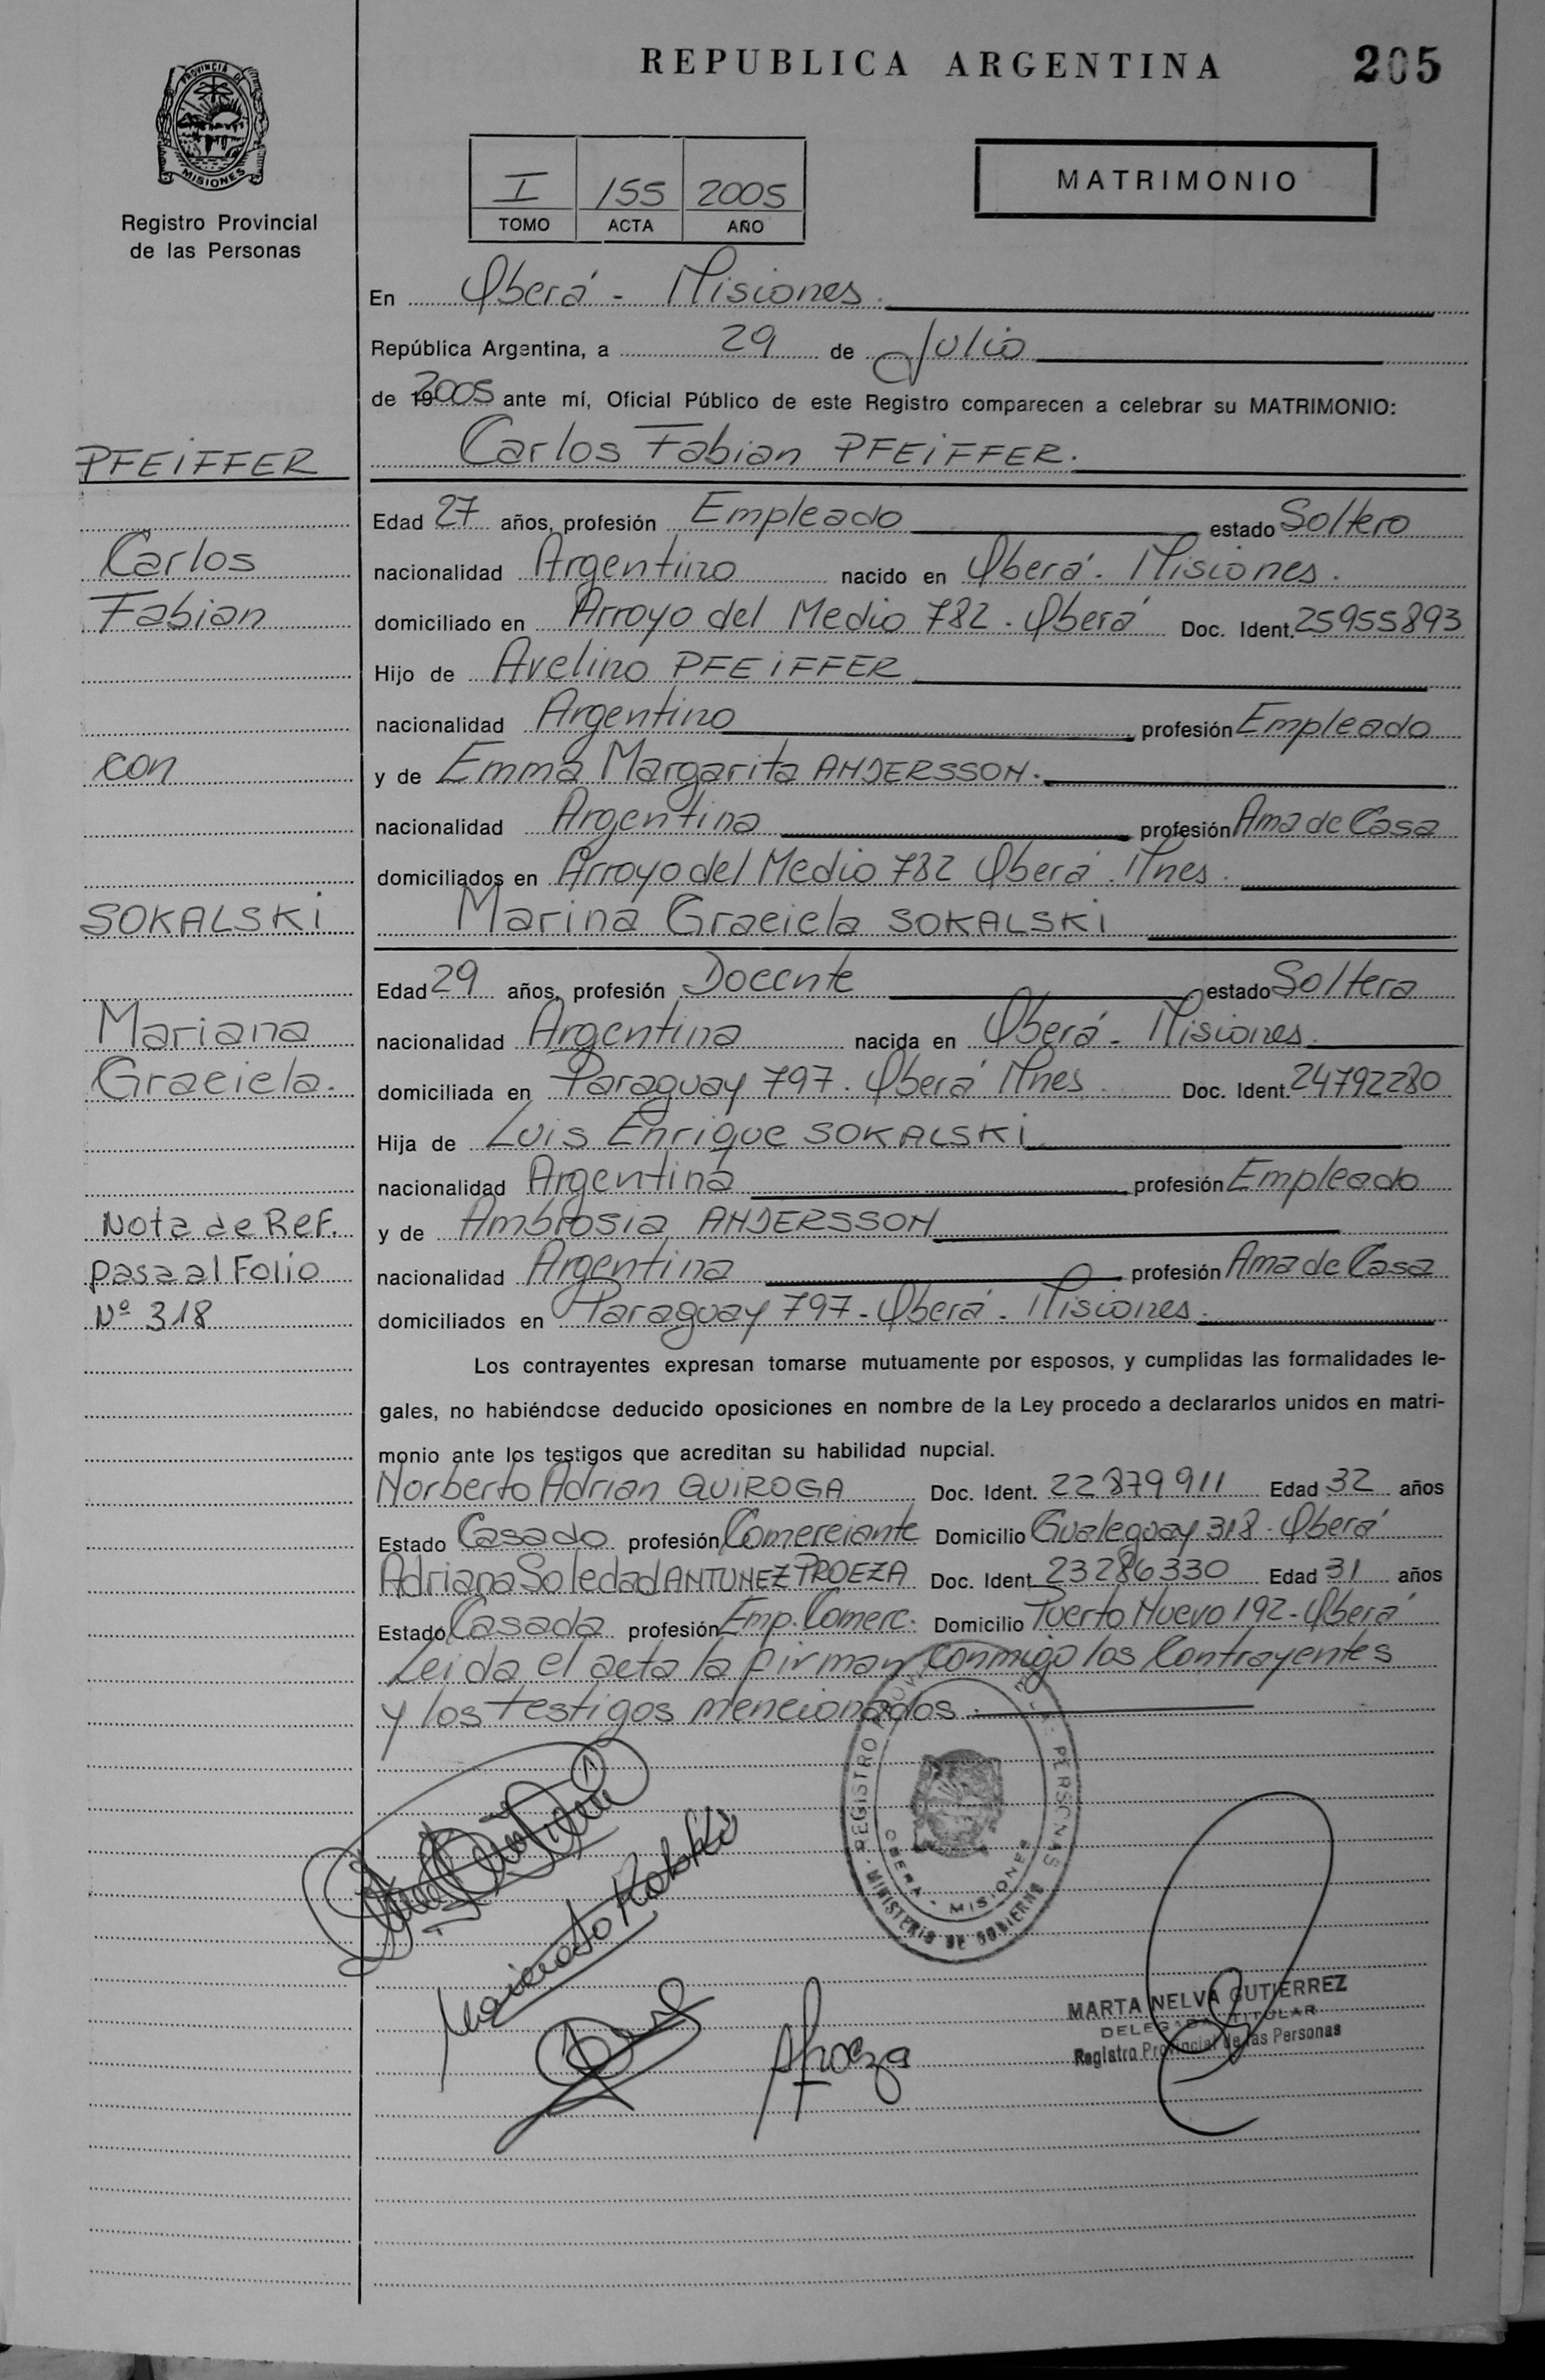 REPUBLICA ARGENTINA
205
PROVINCIA DE
MISIONES
Registro Provincial
de las Personas
I 155 2005
TOMO ACTA AÑO
MATRIMONIO
En Oberá - Misiones.
República Argentina, a 29 de Julio
de 2005 ante mí, Oficial Público de este Registro comparecen a celebrar su MATRIMONIO:
PFEIFFER
Carlos Fabian PFEIFFER.
Edad 27 años, profesión Empleado estado Soltero
Carlos
nacionalidad Argentino nacido en Oberá - Misiones.
Fabian
domiciliado en Arroyo del Medio 782 - Oberá Doc. Ident. 25955893
Hijo de Avelino PFEIFFER
nacionalidad Argentino profesión Empleado
con
y de Emma Margarita ANDERSSON.
nacionalidad Argentina profesión Ama de Casa
domiciliados en Arroyo del Medio 782 Oberá. Mnes.
SOKALSKI
Marina Graciela SOKALSKI
Edad 29 años, profesión Docente estado Soltera
Mariana
nacionalidad Argentina nacida en Oberá - Misiones.
Graciela.
domiciliada en Paraguay 797. Oberá Mnes. Doc. Ident. 24792280
Hija de Luis Enrique SOKALSKI
nacionalidad Argentina profesión Empleado
Nota de Ref.
y de Ambrosia ANDERSSON
pasa al Folio
nacionalidad Argentina profesión Ama de Casa
Nº 318
domiciliados en Paraguay 797 - Oberá - Misiones.
Los contrayentes expresan tomarse mutuamente por esposos, y cumplidas las formalidades le-
gales, no habiéndose deducido oposiciones en nombre de la Ley procedo a declararlos unidos en matri-
monio ante los testigos que acreditan su habilidad nupcial.
Norberto Adrian QUIROGA Doc. Ident. 22879911 Edad 32 años
Estado Casado profesión Comerciante Domicilio Gualeguay 318 - Oberá
Adriana Soledad ANTUNEZ PROEZA Doc. Ident 23286330 Edad 31 años
Estado Casada profesión Emp. Comerc. Domicilio Puerto Nuevo 192 - Oberá
Leida el acta la firman conmigo los Contrayentes
y los testigos mencionados.
REGISTRO PROV. DE LAS PERSONAS
OBERA - MISIONES
MINISTERIO DE GOBIERNO
MARTA NELVA GUTIERREZ
DELEGADA TITULAR
Registro Provincial de las Personas